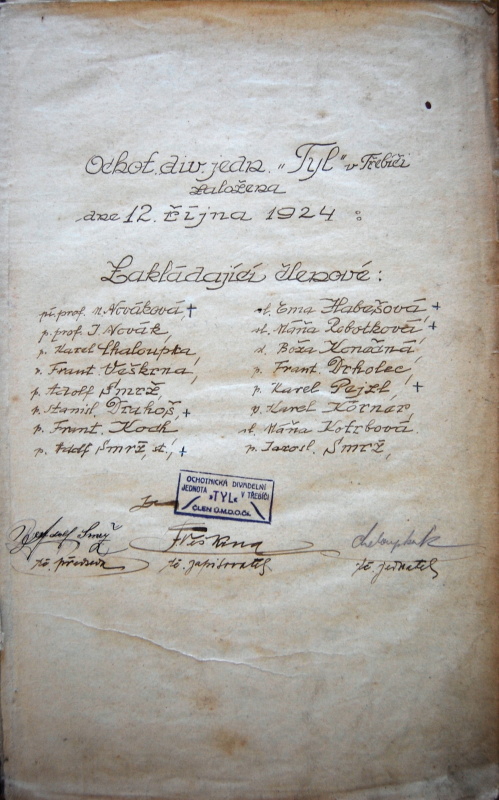 Ochot. div. jedn. „Tyl" v Třebíči
založena
dne 12. října 1924 :
Zakládající členové:
pí. prof. M. Nováková, +
p. prof. J. Novák,
p. Karel Chaloupka,
p. Frant. Veškrna,
p. Adolf Smrž,
p. Stanisl. Druhoš, +
p. Frant. Koch
p. Adolf Smrž, st., +
sl. Ema Habešová, +
sl. Máňa Robotková, +
sl. Boža Konečná,
p. Frant. Drholec,
p. Karel Pejzl, +
p. Karel Körner,
sl. Máňa Kotrbová.
p. Jarosl. Smrž,
OCHOTNICKÁ DIVADELNÍ
JEDNOTA „TYL" V TŘEBÍČI
ČLEN Ú.M.D.O.Č.
Smrž
t.č. předseda
t.č. zapisovatel
Chaloupka
t.č. jednatel